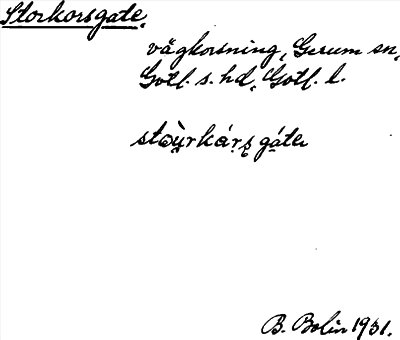 Storkorsgate,
vägkorsning, Gerum sn,
Gotl. s. hd, Gotl. l.
stoùrkárs gáte
B. Bolin 1931.